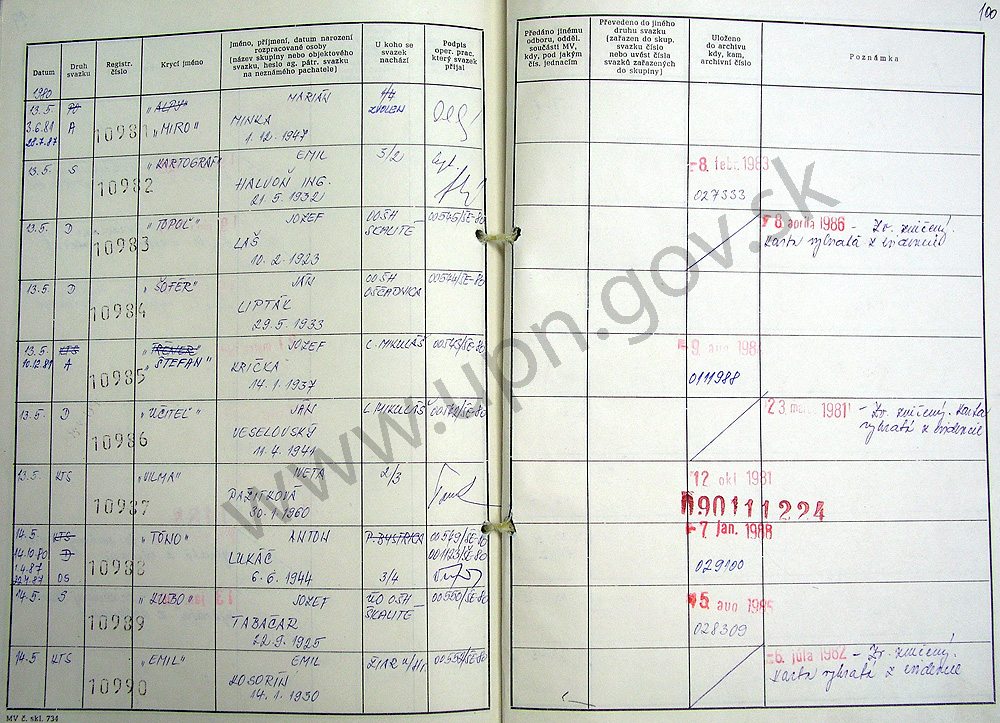 100
Datum
Druh svazku
Registr. číslo
Krycí jméno
Jméno, příjmení, datum narození
rozpracované osoby
(název skupiny nebo objektového
svazku, heslo ag. pátr. svazku
na neznámého pachatele)
U koho se
svazek
nachází
Podpis
oper. prac.
který svazek
přijal
Předáno jinému
odboru, odděl.
součásti MV,
kdy, pod jakým
čís. jednacím
Převedeno do jiného
druhu svazku
(zařazen do skup.
svazku číslo
nebo uvést čísla
svazků zařazených
do skupiny)
Uloženo
do archivu
kdy, kam,
archivní číslo
Poznámka
1980
13.5. "ALPY" MARIÁN ZVOLEN
3.6.81 A 10981 "MIRO" MINKA
1.12.1947
13.5. S "KARTOGRAF" EMIL 3/2 8. febr. 1983
10982 HALVOŇ ING. 027333
21.5.1932
13.5. D "TOPOĽ" JOZEF OOŠH 00545/ŠE-80 8. apríla 1986 - Zv. zničený.
10983 LAŠ SKALITÉ Karta vybratá z evidencie
10.2.1923
13.5. D "ŠOFÉR" JÁN OOŠH 00544/ŠE-80
10984 LIPTÁK OŠČADNICA
29.5.1933
13.5. KTS "TRÉNER" JOZEF L. MIKULÁŠ 00543/ŠE-80 9. aug 198
10.12.81 A 10985 "ŠTEFAN" KRIČKA 0111988
14.1.1937
13.5. D "UČITEĽ" JÁN L. MIKULÁŠ 23. 1981 - Zv. zničený. Karta
10986 VESELOVSKÝ vybratá z evidencie
11.4.1941
13.5. KTS "VILMA" IVETA 2/3 12 okt 1981
10987 PAŽITKOVÁ 90111224
30.1.1960
14.5. KTS "TÓNO" ANTON P. BYSTRICA 00549/ŠE-80 7. jan. 1988
14.10.80 D 10988 LUKÁČ 001123/ŠE-80 029100
1.4.87
OS 6.6.1944 3/4
14.5. S "KUBO" JOZEF OOŠH 00550/ŠE-80 5 aug 1985
10989 TABAČAR SKALITÉ 028309
22.9.1925
14.5 KTS "EMIL" EMIL ŽIAR n/Hr. 6. júla 1982 - Zv. zničený.
10990 KOSORÍN Karta vybratá z evidencie
14.1.1930
MV č. skl. 734
www.upn.gov.sk